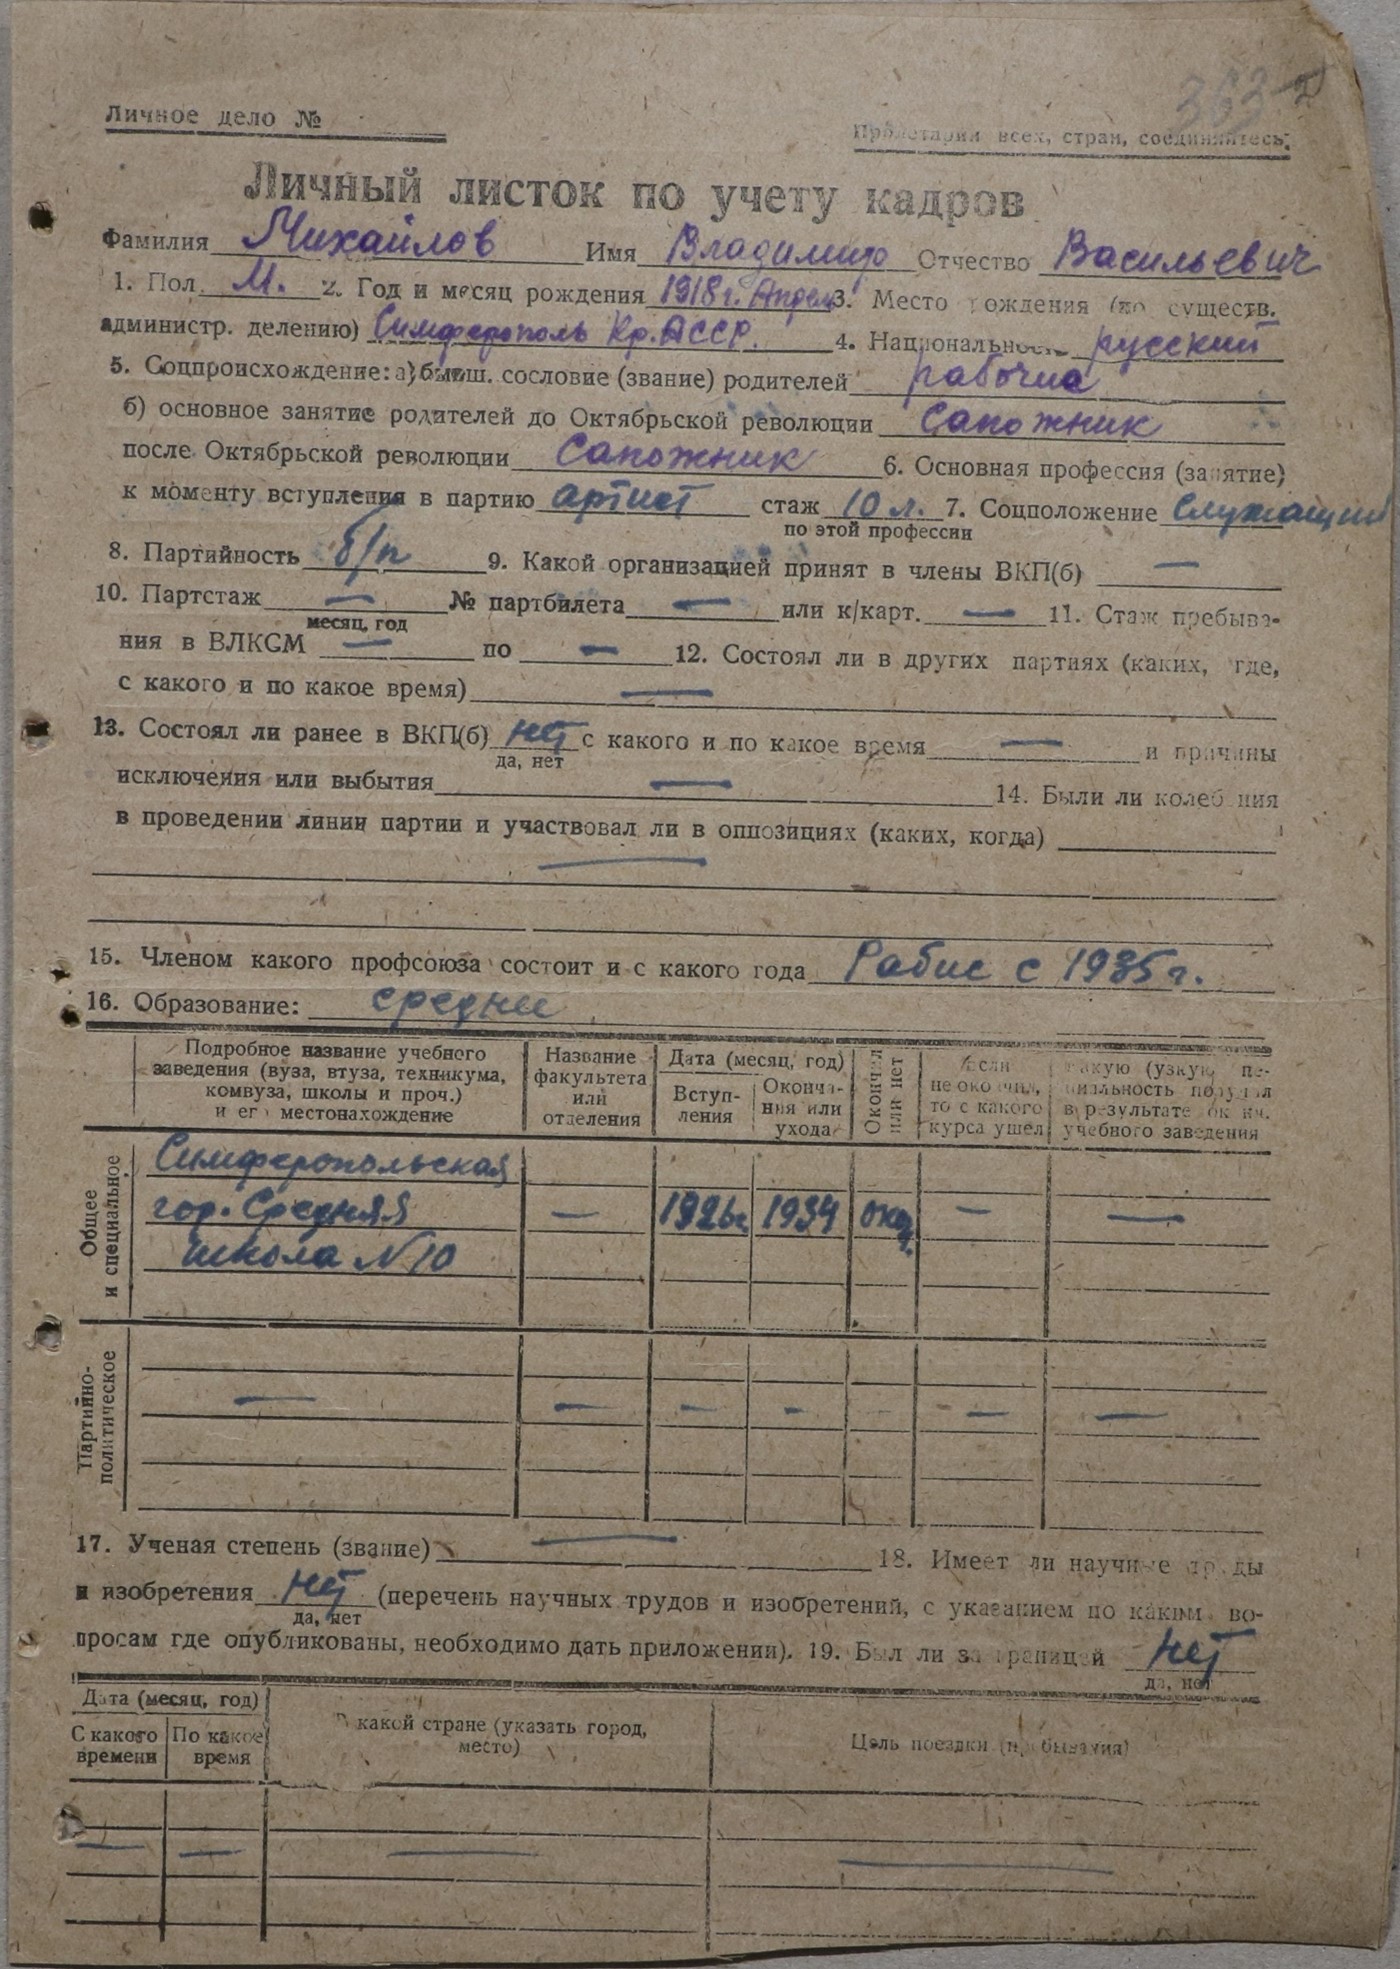 363
Личное дело №
Пролетарии всех, стран, соединяйтесь.
Личный листок по учету кадров
Фамилия Михайлов Имя Владимир Отчество Васильевич
1. Пол М. 2. Год и месяц рождения 1918 г. Апрель 3. Место рождения (по существ.
администр. делению) Симферополь Кр. АССР. 4. Национальность русский
5. Соцпроисхождение: а) бывш. сословие (звание) родителей рабочие
б) основное занятие родителей до Октябрьской революции Сапожник
после Октябрьской революции Сапожник 6. Основная профессия (занятие)
к моменту вступления в партию артист стаж 10 л. 7. Соцположение Служащий
по этой профессии
8. Партийность б/п 9. Какой организацией принят в члены ВКП(б) —
10. Партстаж — № партбилета — или к/карт. — 11. Стаж пребыва-
месяц, год
ния в ВЛКСМ — по — 12. Состоял ли в других партиях (каких, где,
с какого и по какое время) —
13. Состоял ли ранее в ВКП(б) нет с какого и по какое время — и причины
да, нет
исключения или выбытия — 14. Были ли колебания
в проведении линии партии и участвовал ли в оппозициях (каких, когда)
—
15. Членом какого профсоюза состоит и с какого года Рабис с 1935 г.
16. Образование: средне
Подробное название учебного заведения (вуза, втуза, техникума, комвуза, школы и проч.) и его местонахождение
Название факультета или отделения
Дата (месяц, год)
Вступ-ления
Оконча-ния или ухода
Окончил или нет
Если не окончил, то с какого курса ушел
какую (узкую) спе-циальность получил в результате оконч. учебного заведения
Общее и специальное
Симферопольская
гор. Средняя — 1926г. 1934 окон. — —
школа N 10
Партийно-политическое
— — — — — — —
17. Ученая степень (звание) — 18. Имеет ли научные труды
и изобретения нет (перечень научных трудов и изобретений, с указанием по каким во-
да, нет
просам где опубликованы, необходимо дать приложении). 19. Был ли за границей нет
да, нет
Дата (месяц, год)
С какого времени
По какое время
В какой стране (указать город, место)
Цель поездки (пребывания)
— — — —